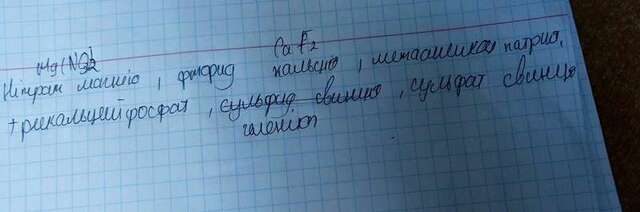 Mg(NO3)2 CaF2
Нітрат магнію, фторид кальцію, метасилікат натрію,
трикальційфосфат, сульфід свинцю, сульфат свинцю